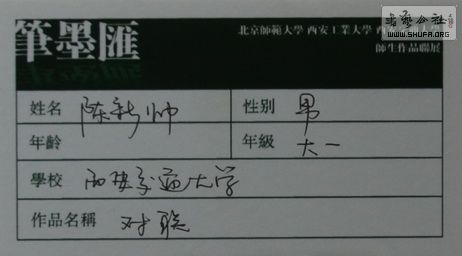 筆墨匯
北京師範大學 西安工業大學 西
師生作品聯展
書藝公社
WWW.SHUFA.ORG
姓名 陈新帅 性别 男
年齡 年級 大一
學校 西安交通大学
作品名稱 对联